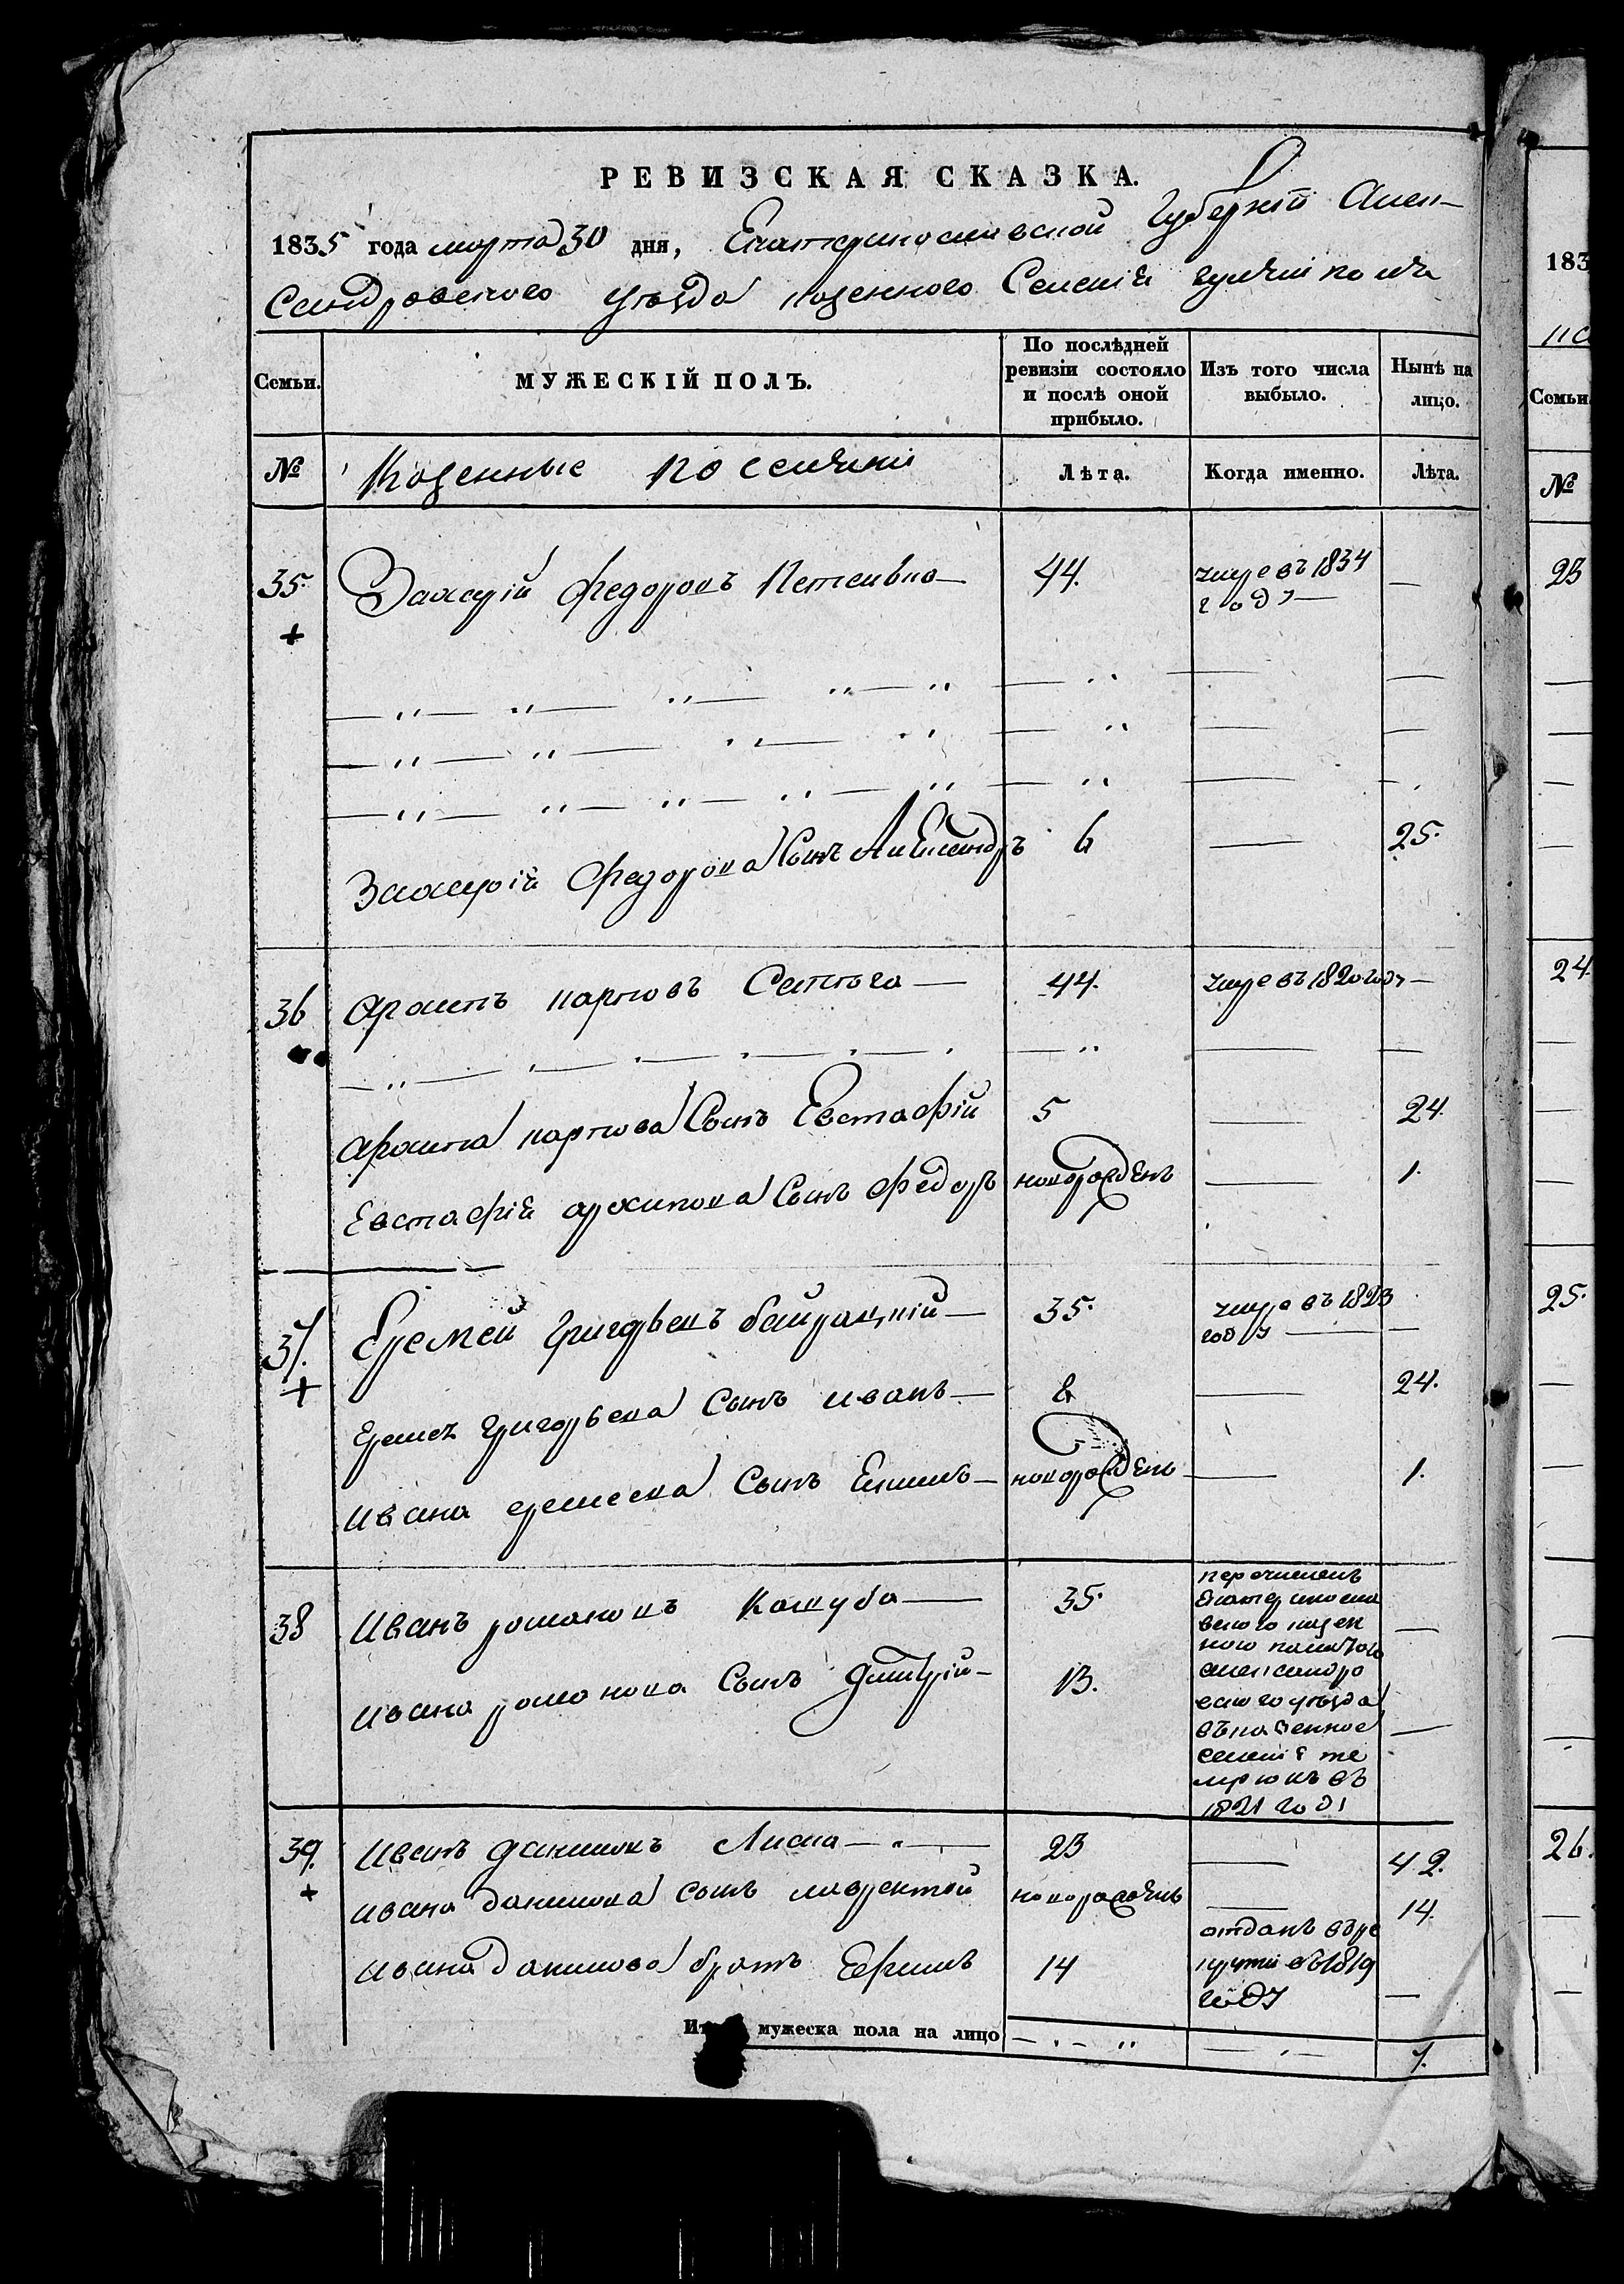 РЕВИЗСКАЯ СКАЗКА.
1835 года марта 30 дня, Екатеринославской Губерніи Алек-
сандровского уѣзда казенного Селенія
Семьи. МУЖЕСКІЙ ПОЛЪ. По послѣдней ревизіи состояло и послѣ оной прибыло. Изъ того числа выбыло. Нынѣ на лицо.
№ Казенные поселяни Лѣта. Когда именно. Лѣта.
35. Захарій Федоровъ 44. умре въ 1834 —
году —
Захарій Федорова Сынъ Александръ 6 — 25.
36 Архипъ карповъ Сапюга — 44. умре въ 1820 году —
Архипа карпова Сынъ Евстафій 5 — 24.
Евстафій архипова Сынъ Федоръ новорожденъ — 1.
37. Еремей Григорьевъ байрацкій — 35. умре въ 1823
году — —
Григорьева Сынъ иванъ — 8 — 24.
ивана еремеева Сынъ Екимъ — новорожденъ — 1.
38 Иванъ романовъ Кошуба — 35. перечисленъ
Екатеринослав
ского казен
ного
александро
вского уѣзда —
ивана романова Сынъ Дмитрій — 13. въ казенное —
селеніе те
мрюкъ въ
1821 году
39. Иванъ даниловъ Лисна — 23 — 42.
ивана данилова сынъ лаврентій новорожденъ — 14.
ивана данилова братъ Ефимъ 14 отданъ въ ре
круты въ 1819
году —
мужеска пола на лицо 7.
183
Семьи.
№
23
24.
25.
26.